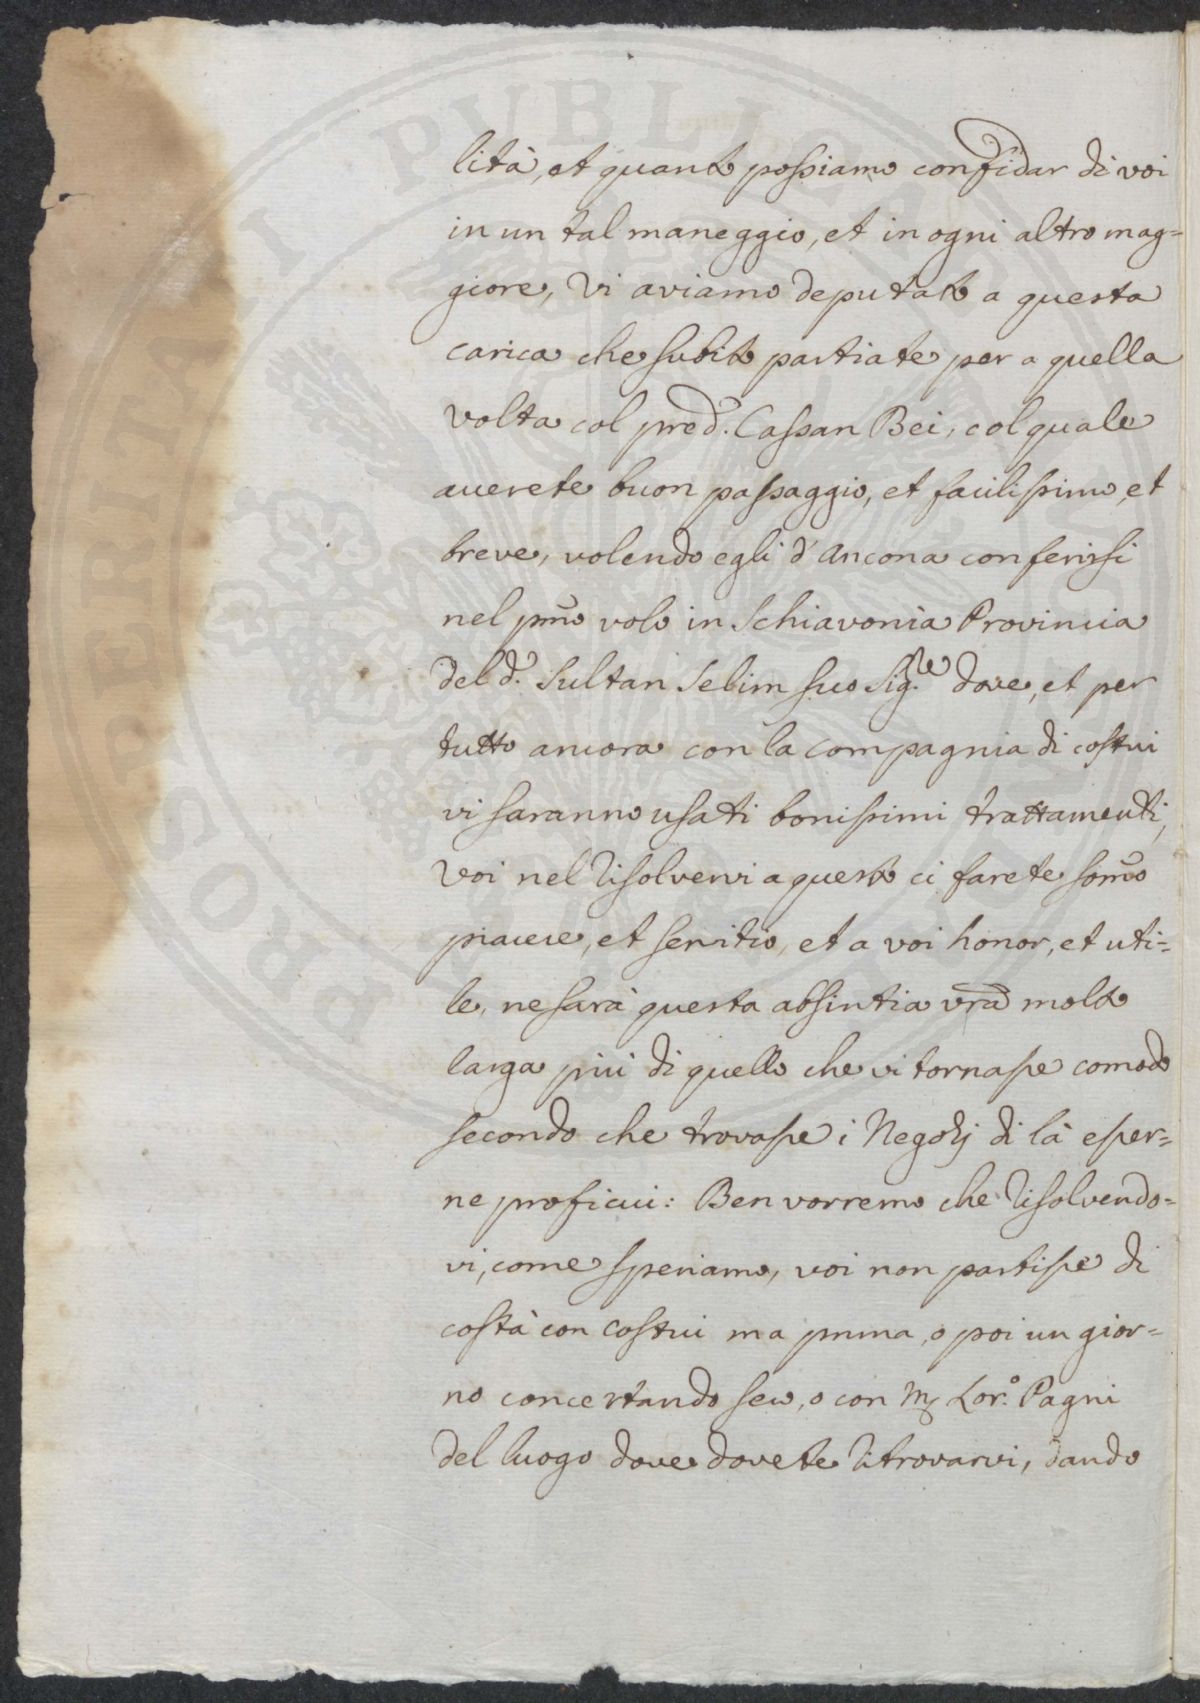 lità, et quanto possiamo confidar di voi
in un tal maneggio, et in ogni altro mag=
giore, Vi aviamo deputato a questa
carica che subito partiate per a quella
volta col pred.º Cassan Bei, col quale
averete buon passaggio, et facilissimo, et
breve, volendo egli d'Ancona conferirsi
nel pmo volo in Schiavonia Provincia
del d.º Sultan Selim suo Sig.re dove, et per
tutto ancora con la compagnia di costui
vi saranno usati bonissimi trattamenti,
Voi nel risolvervi a questo ci farete somo
piacere, et servitio, et a voi honor, et uti=
le, ne sarà questa absintia vra molto
larga più di quello che vi tornasse comodo
secondo che trovasse i Negozj di là esser=
ne proficui: Ben vorremo che risolvendo=
vi, come speriamo, voi non partisse di
costà con costui ma prima, o poi un gior=
no concertando seco, o con M Lor.º Pagni
del luogo dove dovete ritrovarvi, dando
POSSUNT
PUBLICA